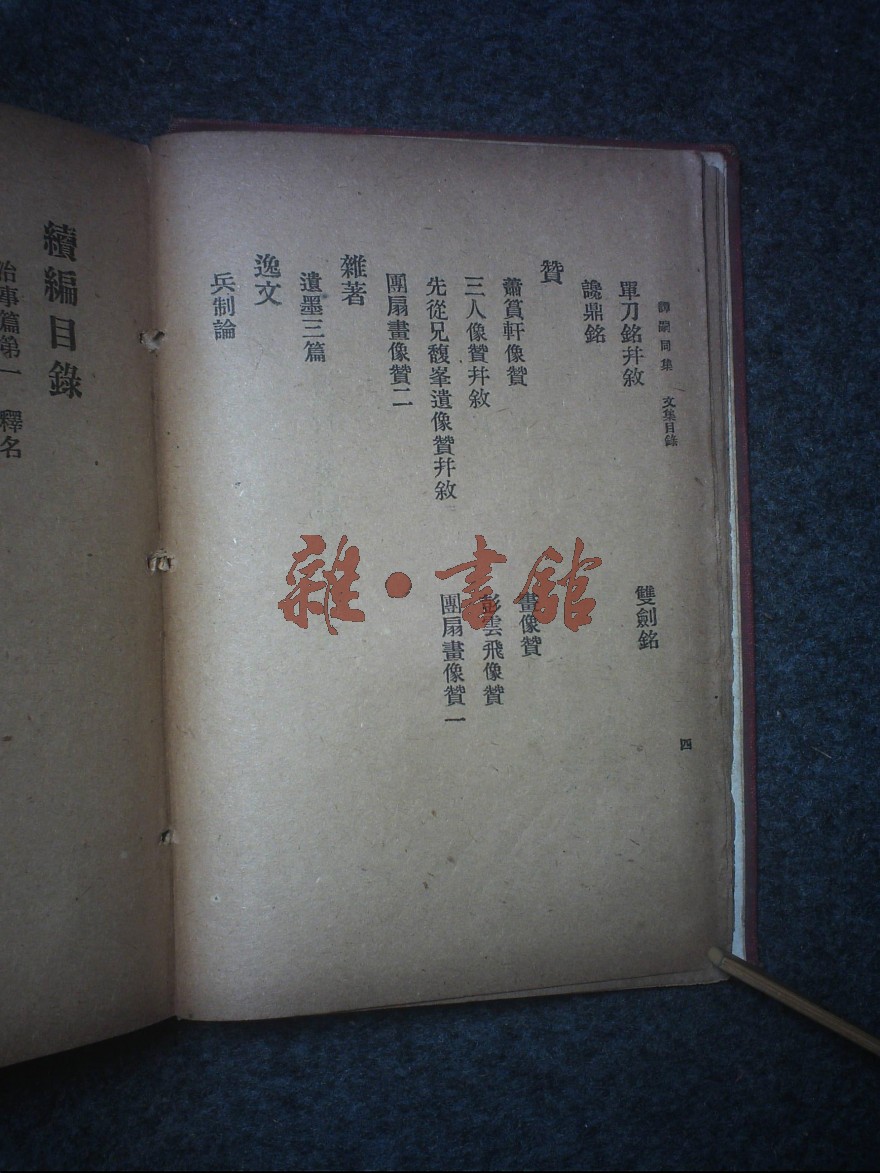 譚嗣同集 文集目錄 四
單刀銘幷敘 雙劍銘
讒鼎銘
贊
蕭篔軒像贊 畫像贊
三人像贊幷敘 彭雲飛像贊
先從兄馥峯遺像贊幷敘 團扇畫像贊一
團扇畫像贊二
雜著
遺墨三篇
逸文
兵制論
續編目錄
治事篇第一 釋名
雜·書館